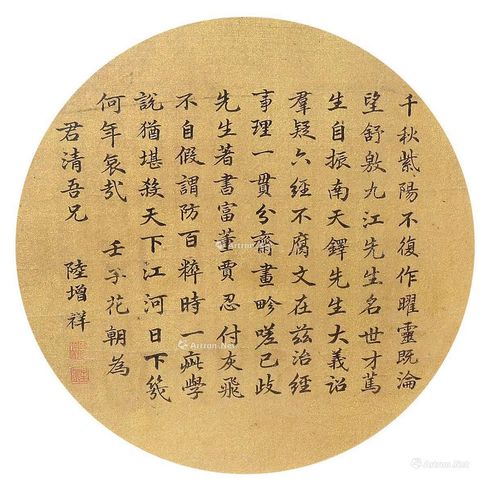 千秋紫陽不復作曜靈既淪
望舒敫九江先生名世才篤
生自振南天鐸先生大義詔
羣疑六經不腐文在茲治經
事理一貫分齋畫畛嗟已歧
先生著書富董賈忍付灰飛
不自假謂防百粹時一疵學
說猶堪殺天下江河日下幾
何年哀哉 壬子花朝為
君清吾兄 陸增祥
Artron.Net
Artron.Net
Artron.Net